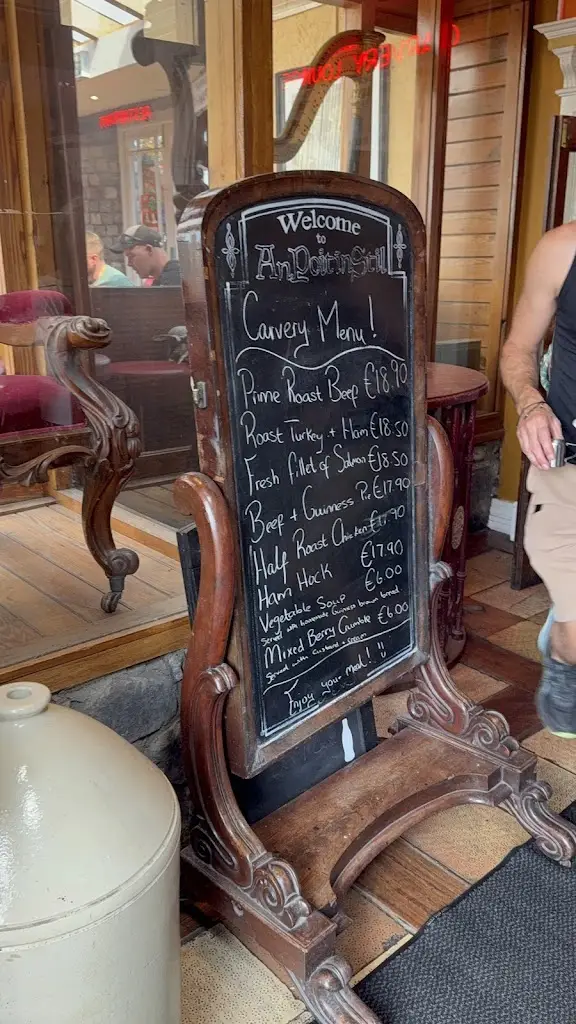 Welcome
to
An Poitín Stil
Carvery Menu!
Prime Roast Beef €18.90
Roast Turkey + Ham €18.50
Fresh fillet of Salmon €18.50
Beef + Guinness Pie €17.90
Half Roast Chicken €17.90
Ham Hock €17.90
Vegetable Soup €6.00
Served with homemade Guinness brown bread
Mixed Berry Crumble €6.00
Served with Custard + cream
Enjoy your meal!!